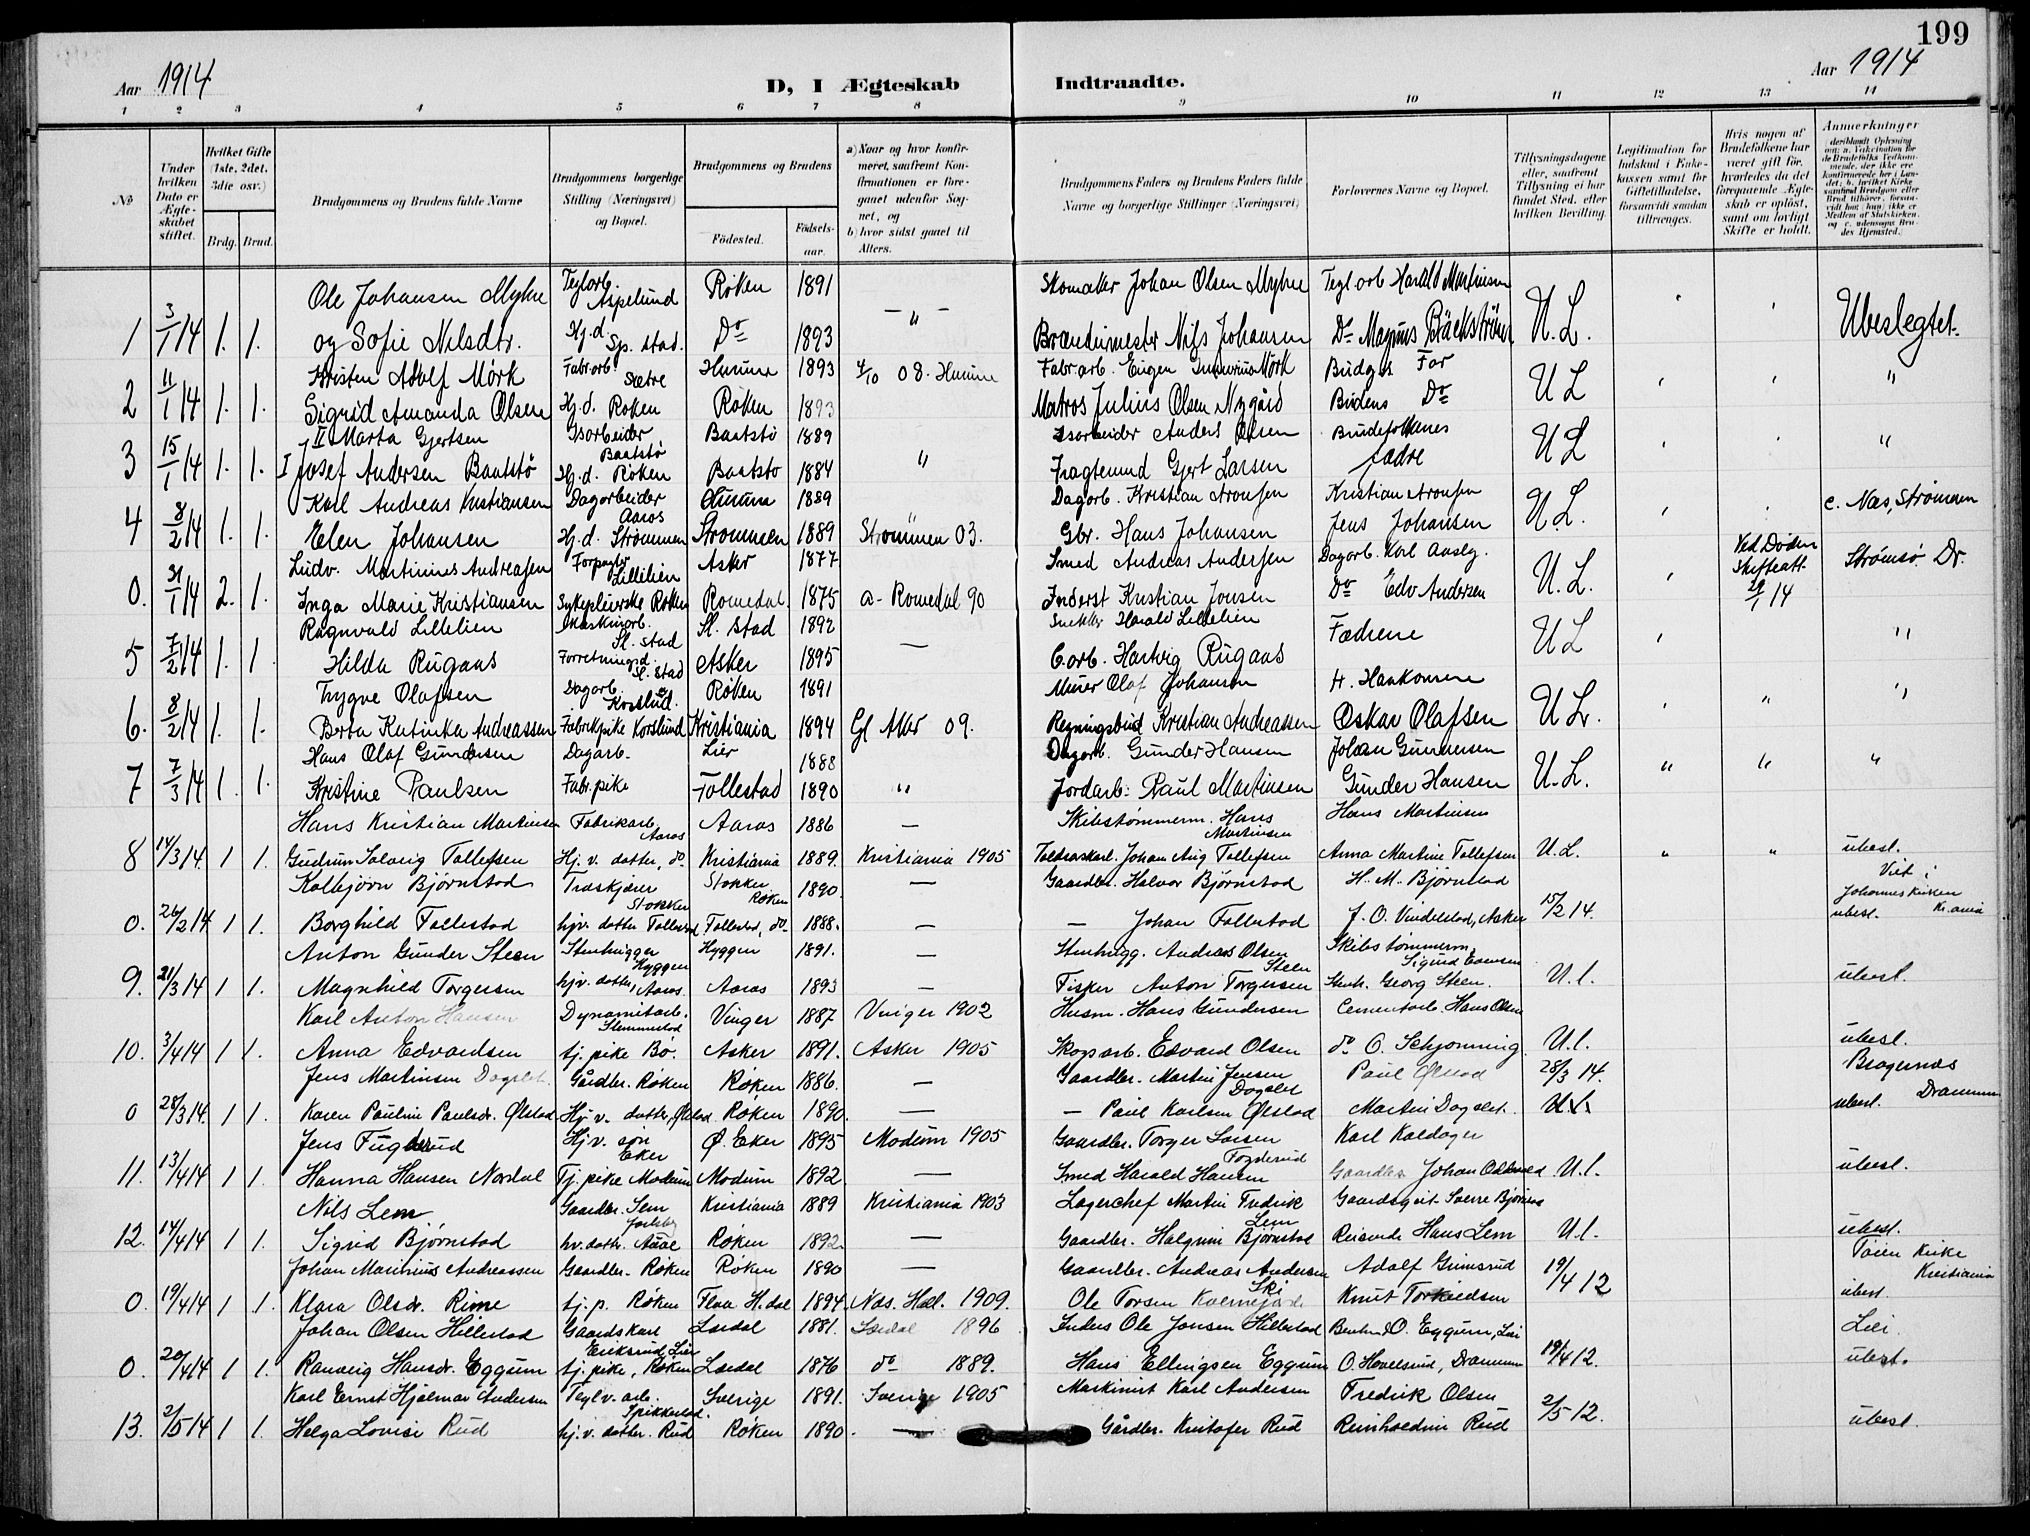 199
Aar 1914
D, I Ægteskab
Indtraadte.
Aar 1914
1 2 3 4 5 6 7 8 9 10 11 12 13 14
No
Under hvilken Dato er Ægteskabet stiftet.
Hvilket Gifte (1ste, 2det, 3die osv.)
Brdg. Brud.
Brudgommens og Brudens fulde Navne
Brudgommens borgerlige Stilling (Næringsvei) og Bopæl.
Brudgommens og Brudens
Fødested.
Fødselsaar.
a) Naar og hvor konfirmeret, saafremt Konfirmationen er foregaaet udenfor Sognet, og
b) hvor sidst gaaet til Alters.
Brudgommens Faders og Brudens Faders fulde Navne og borgerlige Stillinger (Næringsvei)
Forlovernes Navne og Bopæl.
Tillysningsdagene eller, saafremt Tillysning ei har fundet Sted, efter hvilken Bevilling.
Legitimation for Indskud i Enkekassen samt for Giftetilladelse, forsaavidt saadan tiltrænges.
Hvis nogen af Brudefolkene har været gift før, hvorledes da det foregaaende Ægteskab er opløst, samt om lovligt Skifte er holdt.
Anmerkninger
Ole Johansen Myhre Teglorb. Aspelund Røken 1891 Skomaker Johan Olsen Myhre Tegl orb Harald Martinsen
1 3/1 14 1. 1. og Sofie Nilsdtr. Hj.d. Sp. stad. Do 1893 — " — Brændimester Nils Johansen Do Magnus Bäckström U. L. Ubeslegtet.
Kristen Adolf Mörk Fabr.orb. Sætre Hurum 1893 4/10 08. Hurum Fabr.arb. Eugen Mörk Budgs Far
2 11/1 14 1. 1. Sigrid Amanda Olsen Hj.d. Røken Røken 1893 Matros Julius Olsen Nygård Brudens Do U L "
II Marta Gjertsen Isarbeider Baatstø Baatstø 1889 Isarbeider Anders Olsen Brudefolkenes
3 15/1 14 1. 1. I Josef Andersen Baatstö Hj.d. Røken Baatsto 1884 " Fragtemand Gjert Larsen fædre U L "
Karl Andreas Kristiansen Dagarbeider Aaros Hurum 1889 Dagorb. Kristian Aronsen Kristian Aronsen
4 8/2 14 1. 1. Elen Johansen Hj.d. Strömmen Strommen 1889 Strømmen 03. Gbr. Hans Johansen Jens Johansen U L. c. Næs, Strømmen
Ludv. Martinius Andreasen Forpagter Lillelien Asker 1877 Smed Andreas Andersen Dagorb. Karl Ved Døden Skifteatt.
0. 31/1 14 2. 1. Inga Marie Kristiansen Sykepleierske Røken Romedal 1875 a- Romedal 90 Inderst Kristian Jonsen Do Edv Andersen U. L. 29/1 14 Strømsø Dr.
Ragnvald Lillelien Maskinorb. Sl. stad Sl. stad 1892 Harald Lillelien
5 7/2 14 1. 1 Hilda Rugaas Forretningsd. Sl. stad Asker 1895 — C.orb. Hartvig Rugaas Fædrene U L "
Trygve Olafsen Dagorb. Korslund Røken 1891 Murer Olaf Johansen H. Haakonsen
6. 8/2 14 1. 1. Berta Katinka Andreassen Fabrikpike Korslund Kristiania 1894 Gl Aker 09. Regningsbud Kristian Andreassen Oskar Olafsen U L. " "
Hans Olaf Gundersen Dagarb. Lier 1888 Dagorb. Gunder Hansen Johan Gundersen
7 7/3 14 1. 1. Kristine Paulsen Fabr.pike Follestad 1890 " Jordarb. Paul Martinsen Gunder Hansen U. L. " " "
Hans Kristian Martinsen Fabrikarb. Aaros Aaros 1886 — Skibstømmerm. Hans Martinsen Hans Martinsen
8 14/3 14. 1 1. Gudrun Solveig Tollefsen Hj. v. datter, do. Kristiania 1889. Kristiania 1905 Toldraskarl. Johan Aug Tollefsen Anna Martine Tollefsen U. L. " " ubesl.
Kolbjörn Bjørnstad Træskjærer Stokker Stokker Røken 1890 — Gaardbr. Halvor Bjørnstad H. M. Bjørnstad Viet i Johanneskirken Kr.ania
0. 26/2 14 1 1. Borghild Follestad hjv. datter Follestad Follestad, do 1888. — — Johan Follestad J. O. Vindelstad, Asker 15/2 14. ubesl.
Anton Gunder Steen Stenhugger Hyggen Hyggen 1891. — Stenhugg. Andreas Olsen Steen Skibstømmerm. Sigurd
9. 21/3 14 1 1. Magnhild Torgersen hjv. datter, Aaros Aaros 1893 — Fisker Anton Torgersen Stenh. Georg Steen. U. l. ubesl.
Karl Anton Hansen Dynamitarb. Slemmestad Vinger 1887 Vinger 1902 Husm. Hans Gundersen Cementarb. Hans Olsen
10. 3/4 14 1 1. Anna Edvardsen tj. pike Bø. Asker 1891. Asker 1905 Skogsarb. Edvard Olsen do O. Schjønning U. l. ubesl.
Jens Martinsen Dagslet. Gårdbr. Røken Røken 1886. — Gaardbr. Martin Jensen Dagslet Paul Ølstad 28/3 14. Bragernæs Drammen
0 28/3 14. 1 1. Karen Pauline Paulsdr. Ølstad Hj v. datter, Ølstad Røken 1890 — — Paul Karlsen Ølstad Martin Dagslet. U. l. ubesl.
Jens Fuglerud Hj. v. søn Eker Ø. Eker 1895 Modum 1905 Gaardbr. Torger Larsen Karl Kaldager
11. 13/4 14 1 1. Hanna Hansen Nordal Tj. pike Modum Modum 1892. — Smed Harald Hansen Gaardbr. Johan U. l. ubesl.
Nils Lem Gaardbr. Sem Jarlsberg Kristiania 1889 Kristiania 1903 Lagerchef Martin Fredrik Lem Gaardsgut. Sverre Bjørnstad
12. 14/4 14 1 1. Sigrid Bjørnstad hv. dattr. Aaae Røken 1892 — Gaardbr. Halgrim Bjørnstad Reisende Hans Lem U. l. ubesl.
Johan Marinius Andreassen Gaardbr. Røken Røken 1890 — Gaardbr. Andreas Andersen Ski Adolf Grimsrud 19/4 12 Tøien Kirke Kristiania
0. 19/4 14 1 1. Klara Olsdr. Rime tj. p. Røken Flaa H.dal 1894 Næs. Hall. 1909. Ole Torsen Knut Torkildsen ubesl.
Johan Olsen Hillestad Gaardskarl Eriksrud Lier Lærdal 1881. Lærdal 1896 Inders Ole Jonsen Hillestad O. Eggum, Lier Lier
0. 20/4 14 1 1. Ranveig Hansdr. Eggum tj. pike, Røken Lærdal 1876 do 1889. Hans Ellingsen Eggum O. Hovelsrud, Drammen 19/4 12. ubesl.
Karl Ernst Hjalmar Andersen Teglv. arb. Spikkestad. Sverige 1891. Sverige 1905 Maskinist Karl Andersen Fredrik Olsen
13. 2/5 14 1 1. Helga Lovise Rud hj. v. datter. Rud Røken 1890. — Gårdbr. Kristofer Rud Reinholdine Rud 2/5 12. ubesl.